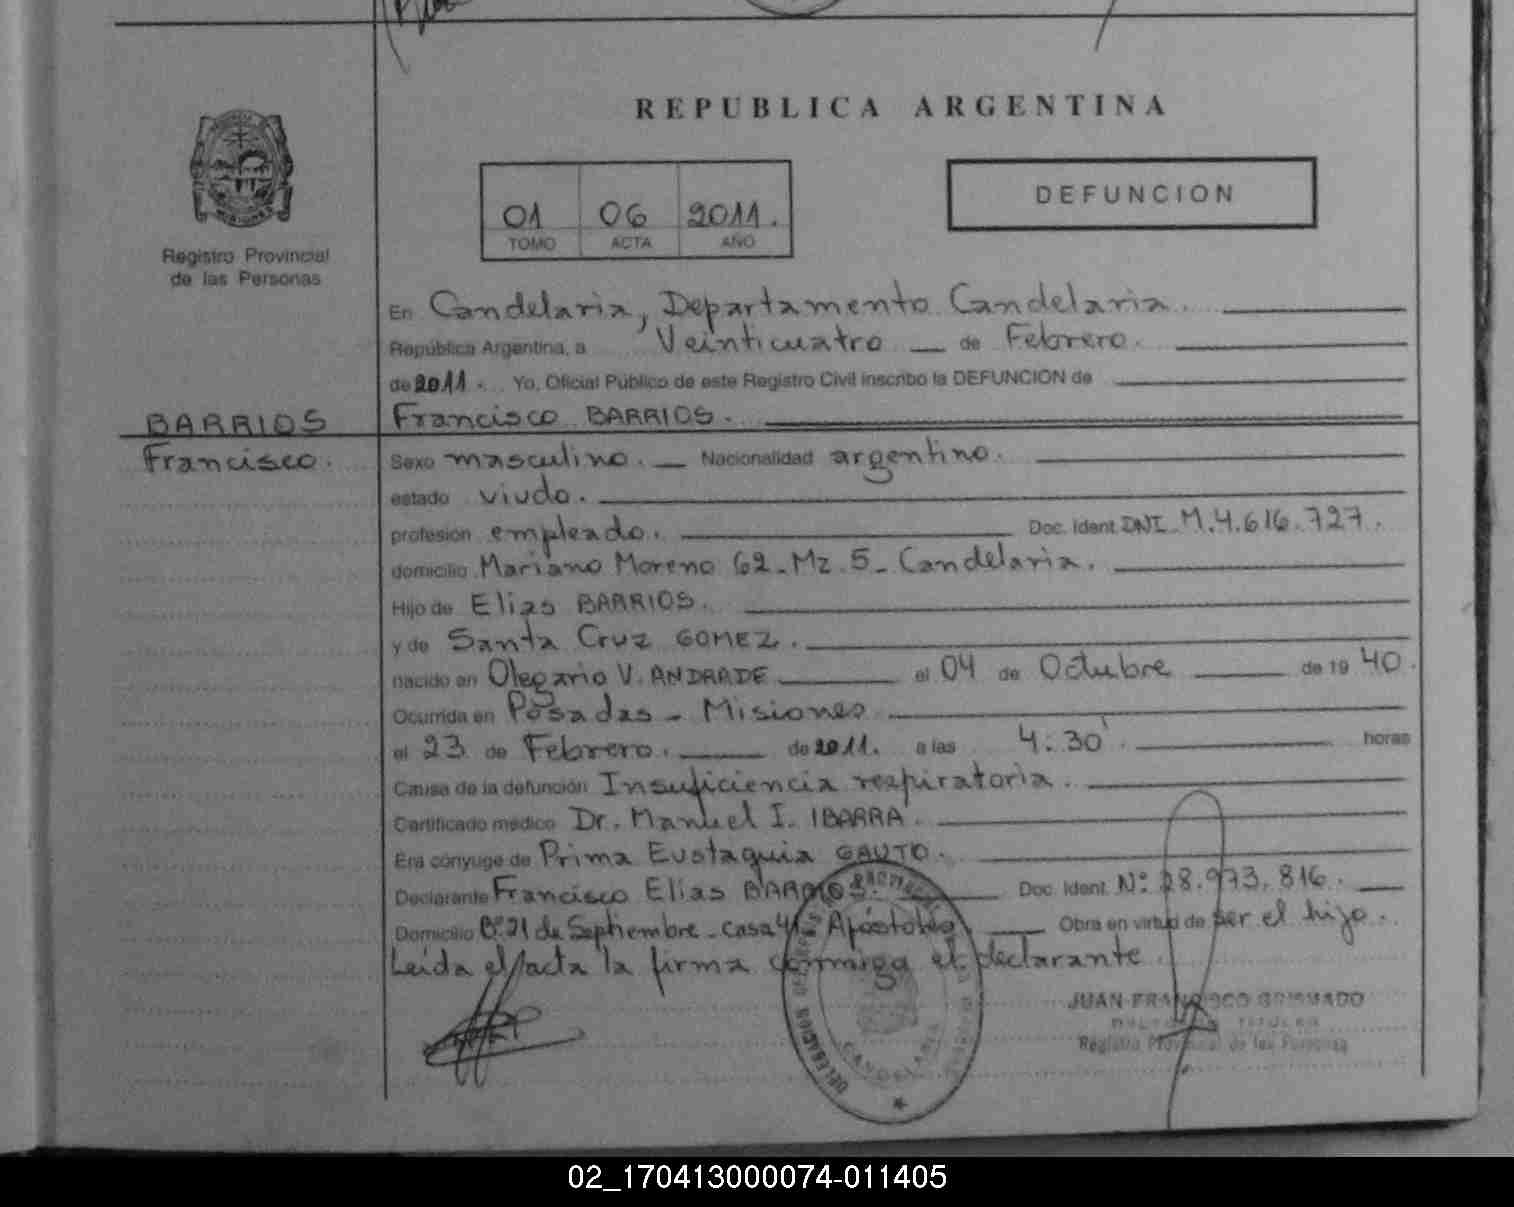 REPUBLICA ARGENTINA
01 06 2011.
TOMO ACTA AÑO
DEFUNCION
Registro Provincial
de las Personas
En Candelaria, Departamento Candelaria.
República Argentina, a Veinticuatro de Febrero.
de 2011. Yo, Oficial Público de este Registro Civil inscribo la DEFUNCION de
BARRIOS
Francisco.
Francisco BARRIOS.
Sexo masculino. Nacionalidad argentino.
estado viudo.
profesión empleado. Doc. Ident. DNI. M. 4.616.727.
domicilio Mariano Moreno 62 - Mz. 5 - Candelaria.
Hijo de Elias BARRIOS.
y de Santa Cruz GOMEZ.
nacido en Olegario V. ANDRADE el 04 de Octubre de 19 40.
Ocurrida en Posadas - Misiones
el 23 de Febrero. de 2011. a las 4:30'. horas
Causa de la defunción Insuficiencia respiratoria.
Certificado médico Dr. Manuel I. IBARRA.
Era cónyuge de Prima Eustaquia GAUTO.
Declarante Francisco Elias BARRIOS. Doc. Ident. Nº 28.973.816.
Domicilio Bº 21 de Septiembre - casa Apóstoles Obra en virtud de ser el hijo.
Leída el acta la firma conmigo el declarante
JUAN FRANCISCO
TITULAR
Registro Provincial de las Personas
DELEGACION
CANDELARIA
02_170413000074-011405